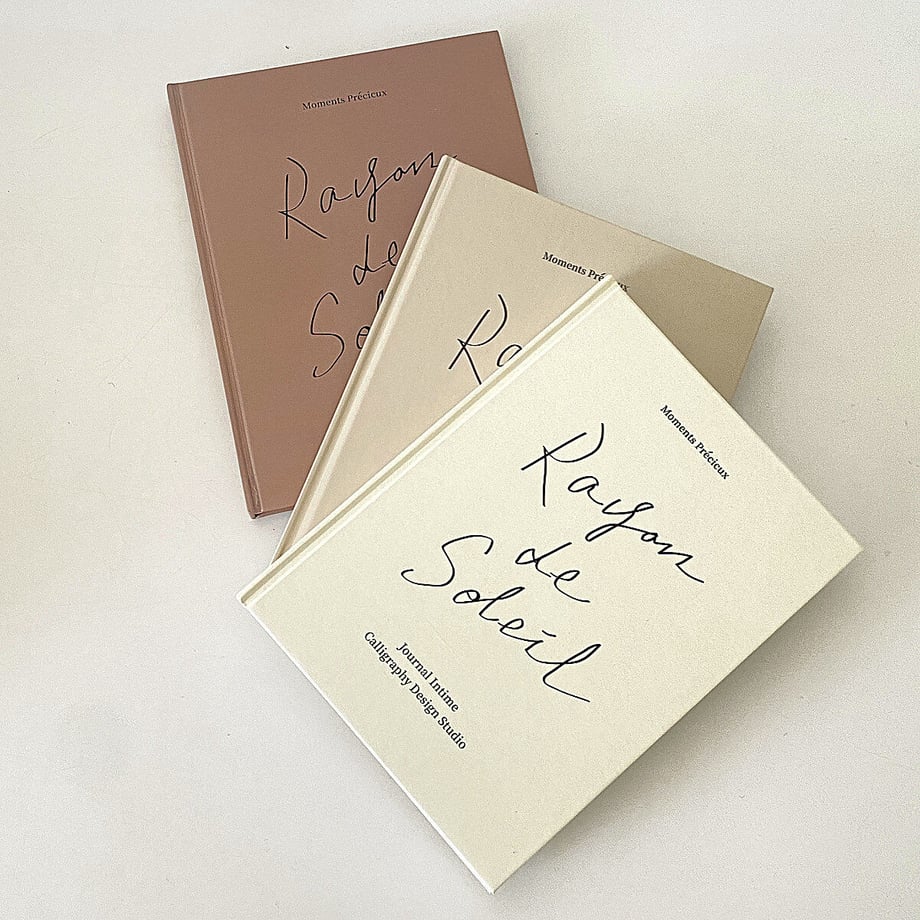 Moments Précieux
Rayon
de
Moments
Moments Précieux
Rayon
de
Soleil
Journal Intime
Calligraphy Design Studio